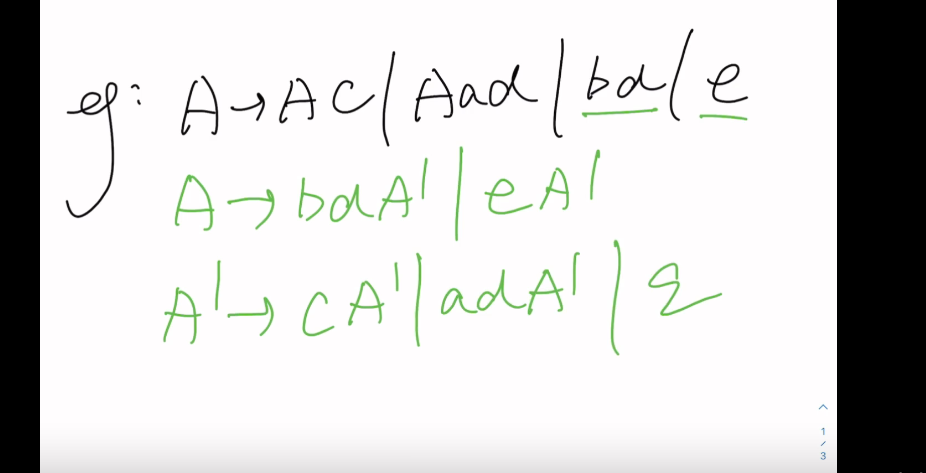 eg: A → AC / Aad / bd / e
A → bdA' | eA'
A' → CA' | adA' | ε
1
/
3